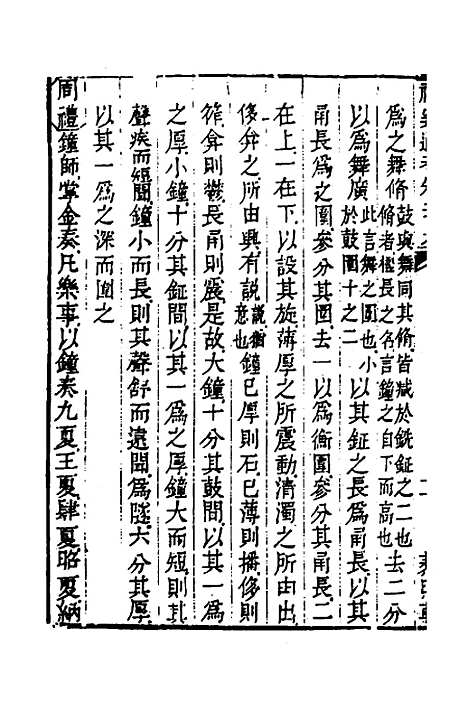 爲之舞脩鼓與舞同其脩皆減於銑鉦之二也脩者橢長之名言鐘之自下而高也去二分
以爲舞廣此言舞之圜也小於鼓圜十之二以其鉦之長爲甬長以其
甬長爲之圍參分其圍去一以爲衡圍參分其甬長二
在上一在下以設其旋薄厚之所震動清濁之所由出
侈弇之所由興有說說猶意也鐘已厚則石已薄則播侈則
筰弇則鬱長甬則震是故大鐘十分其鼓間以其一爲
之厚小鐘十分其鉦間以其一爲之厚鐘大而短則其
聲疾而短聞鐘小而長則其聲舒而遠聞爲隧六分其厚
以其一爲之深而圜之
周禮鐘師掌金奏凡樂事以鐘奏九夏王夏肆夏昭夏納